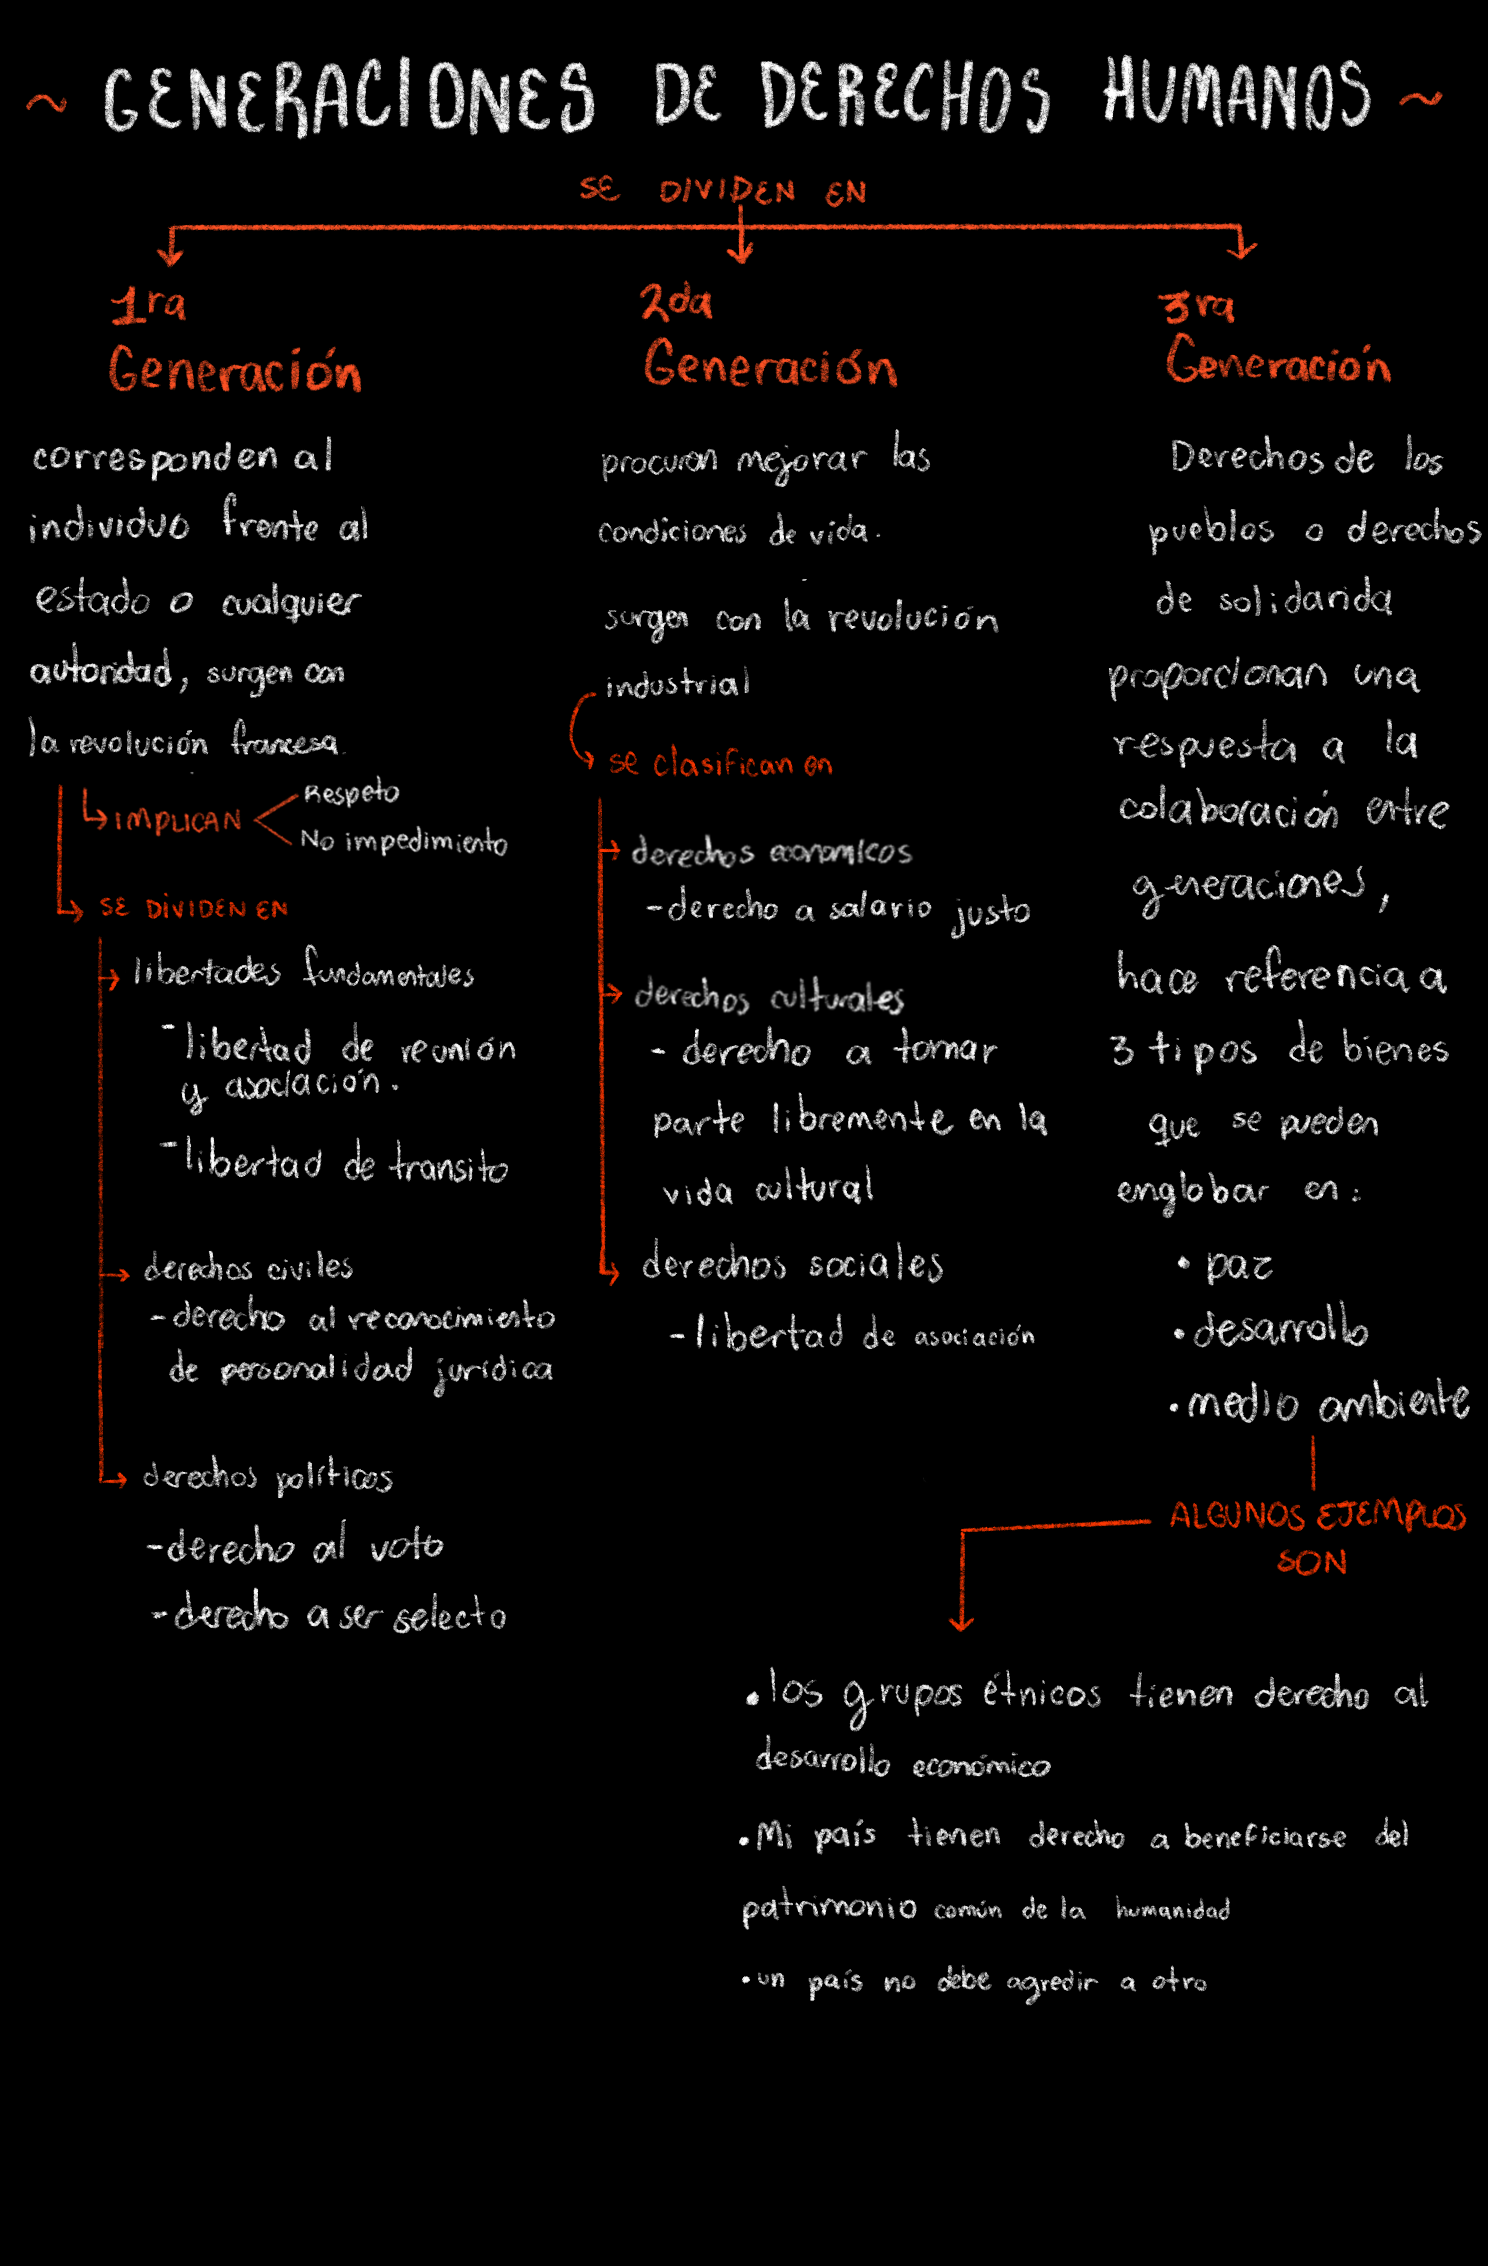 ~ GENERACIONES DE DERECHOS HUMANOS ~
SE DIVIDEN EN
1ra
Generación
corresponden al
individuo frente al
estado o cualquier
autoridad, surgen con
la revolución francesa.
IMPLICAN
Respeto
No impedimiento
SE DIVIDEN EN
libertades fundamentales
- libertad de reunión
y asociación.
- libertad de transito
derechos civiles
- derecho al reconocimiento
de personalidad jurídica
derechos políticos
- derecho al voto
- derecho a ser selecto
2da
Generación
procuran mejorar las
condiciones de vida.
surgen con la revolución
industrial
se clasifican en
derechos economicos
- derecho a salario justo
derechos culturales
- derecho a tomar
parte libremente en la
vida cultural
derechos sociales
- libertad de asociación
3ra
Generación
Derechos de los
pueblos o derechos
de solidarida
proporcionan una
respuesta a la
colaboración entre
generaciones,
hace referencia a
3 tipos de bienes
que se pueden
englobar en:
• paz
• desarrollo
• medio ambiente
ALGUNOS EJEMPLOS
SON
• los grupos étnicos tienen derecho al
desarrollo económico
• Mi país tienen derecho a beneficiarse del
patrimonio común de la humanidad
• un país no debe agredir a otro